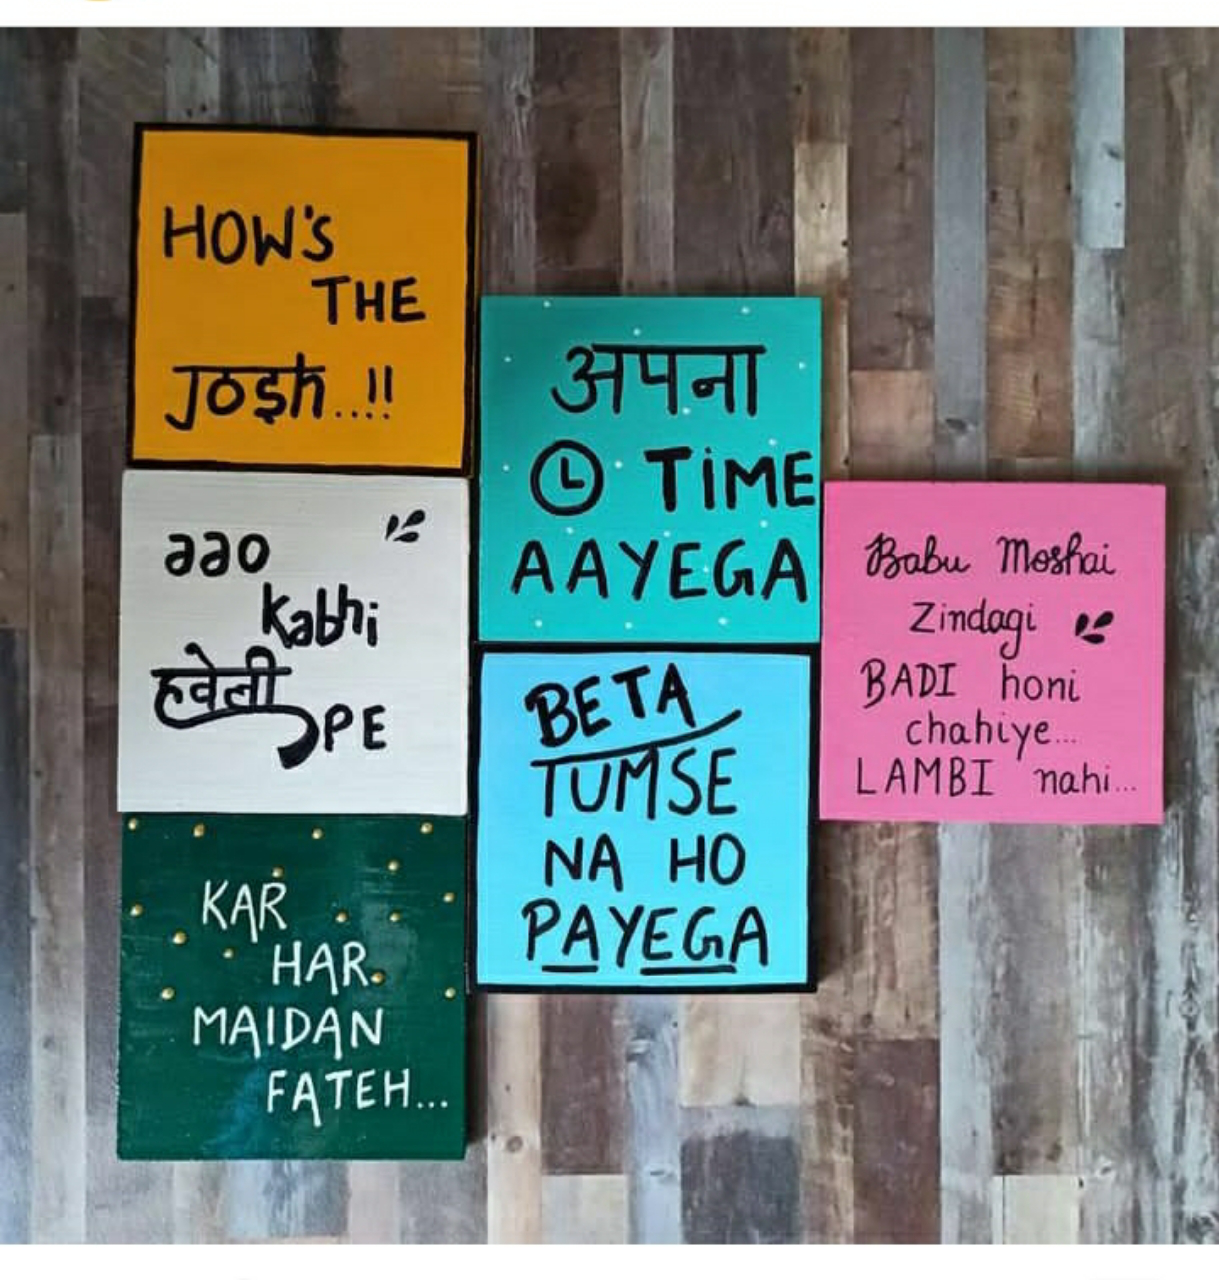 HOW'S
THE
JOSH..!!
aao
Kabhi
हवेली
PE
KAR
HAR
MAIDAN
FATEH...
अपना
TiME
AAYEGA
BETA
TUMSE
NA HO
PAYEGA
Babu Moshai
Zindagi
BADI honi
chahiye...
LAMBI nahi...